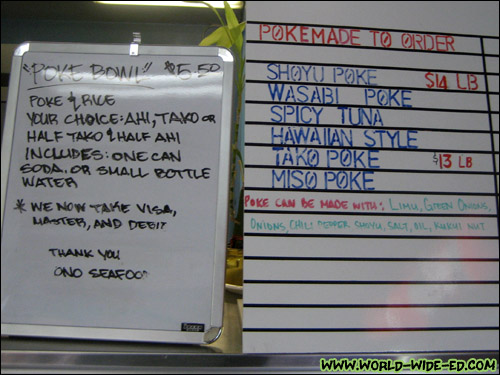 "POKE BOWL" $5.50
POKE & RICE
YOUR CHOICE: AHI, TAKO OR
HALF TAKO & HALF AHI
INCLUDES: ONE CAN
SODA. OR SMALL BOTTLE
WATER
* WE NOW TAKE VISA,
MASTER, AND DEBIT
THANK YOU
ONO SEAFOOD
POKE MADE TO ORDER
SHOYU POKE $14 LB
WASABI POKE
SPICY TUNA
HAWAIIAN STYLE
TAKO POKE $13 LB
MISO POKE
POKE CAN BE MADE WITH: LIMU, GREEN ONIONS,
ONIONS, CHILI PEPPER SHOYU, SALT, OIL, KUKUI NUT
WWW.WORLD-WIDE-ED.COM